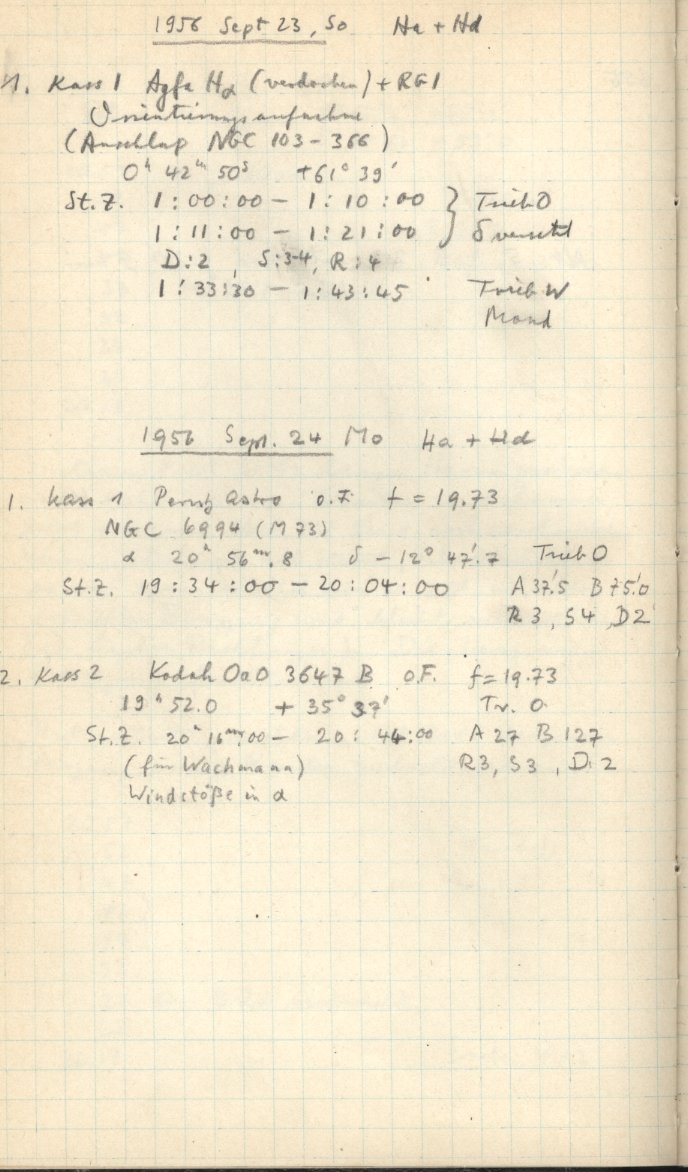 1956 Sept 23, So Ha + Hd
1. Kass 1 Agfa Hα (verdorben) + RG1
Orientierungsaufnahme
(Anschluß NGC 103 - 366)
0ʰ 42ᵐ 50ˢ +61° 39'
St.Z. 1:00:00 - 1:10:00 } Trieb O
1:11:00 - 1:21:00 δ versetzt
D:2, S:3-4, R:4
1:33:30 - 1:43:45 Trieb W
Mond
1956 Sept. 24 Mo Ha + Hd
1. Kass 1 Perutz Astro o.F. f = 19.73
NGC 6994 (M73)
α 20ʰ 56ᵐ.8 δ -12° 47'.7 Trieb O
St.Z. 19:34:00 - 20:04:00 A 37.5 B 75.0
R3, S4, D2
2. Kass 2 Kodak OaO 3647 B o.F. f = 19.73
19ʰ 52.0 + 35° 37' Tr. O.
St.Z. 20ʰ 16ᵐ:00 - 20:44:00 A 27 B 127
(für Wachmann) R3, S3, D:2
Windstöße in α